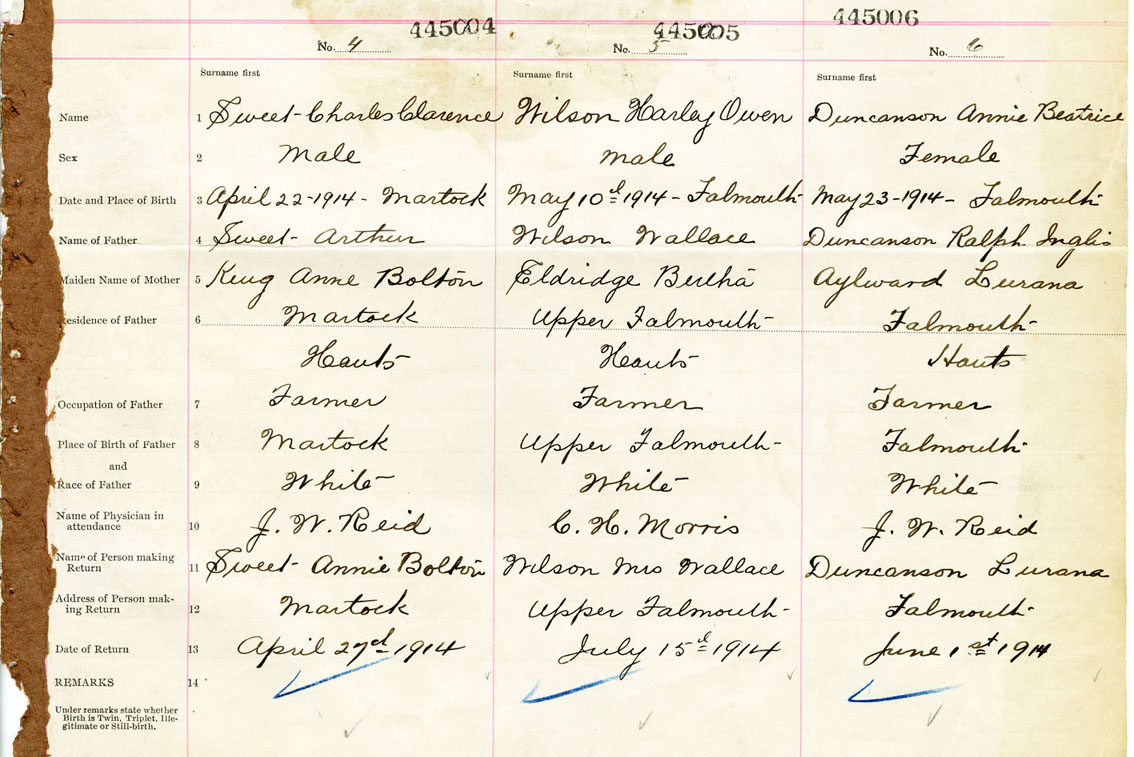 445004 445005 445006
No. 4 No. 5 No. 6
Surname first Surname first Surname first
Name 1 Sweet- Charles Clarence Wilson Harley Owen Duncanson Annie Beatrice
Sex 2 Male male Female
Date and Place of Birth 3 April 22-1914 - Martock May 10th 1914 - Falmouth May 23-1914 - Falmouth
Name of Father 4 Sweet- Arthur Wilson Wallace Duncanson Ralph Inglis
Maiden Name of Mother 5 King Anne Bolton Eldridge Bertha Aylward Lurana
Residence of Father 6 Martock Upper Falmouth Falmouth
Hants Hants Hants
Occupation of Father 7 Farmer Farmer Farmer
Place of Birth of Father 8 Martock Upper Falmouth Falmouth
and
Race of Father 9 White White White
Name of Physician in
attendance 10 J. W. Reid C. H. Morris J. W. Reid
Name of Person making
Return 11 Sweet- Annie Bolton Wilson Mrs Wallace Duncanson Lurana
Address of Person mak-
ing Return 12 Martock Upper Falmouth Falmouth
Date of Return 13 April 27 1914 July 15th 1914 June 1st 1914
REMARKS 14
Under remarks state whether
Birth is Twin, Triplet, Ille-
gitimate or Still-birth.